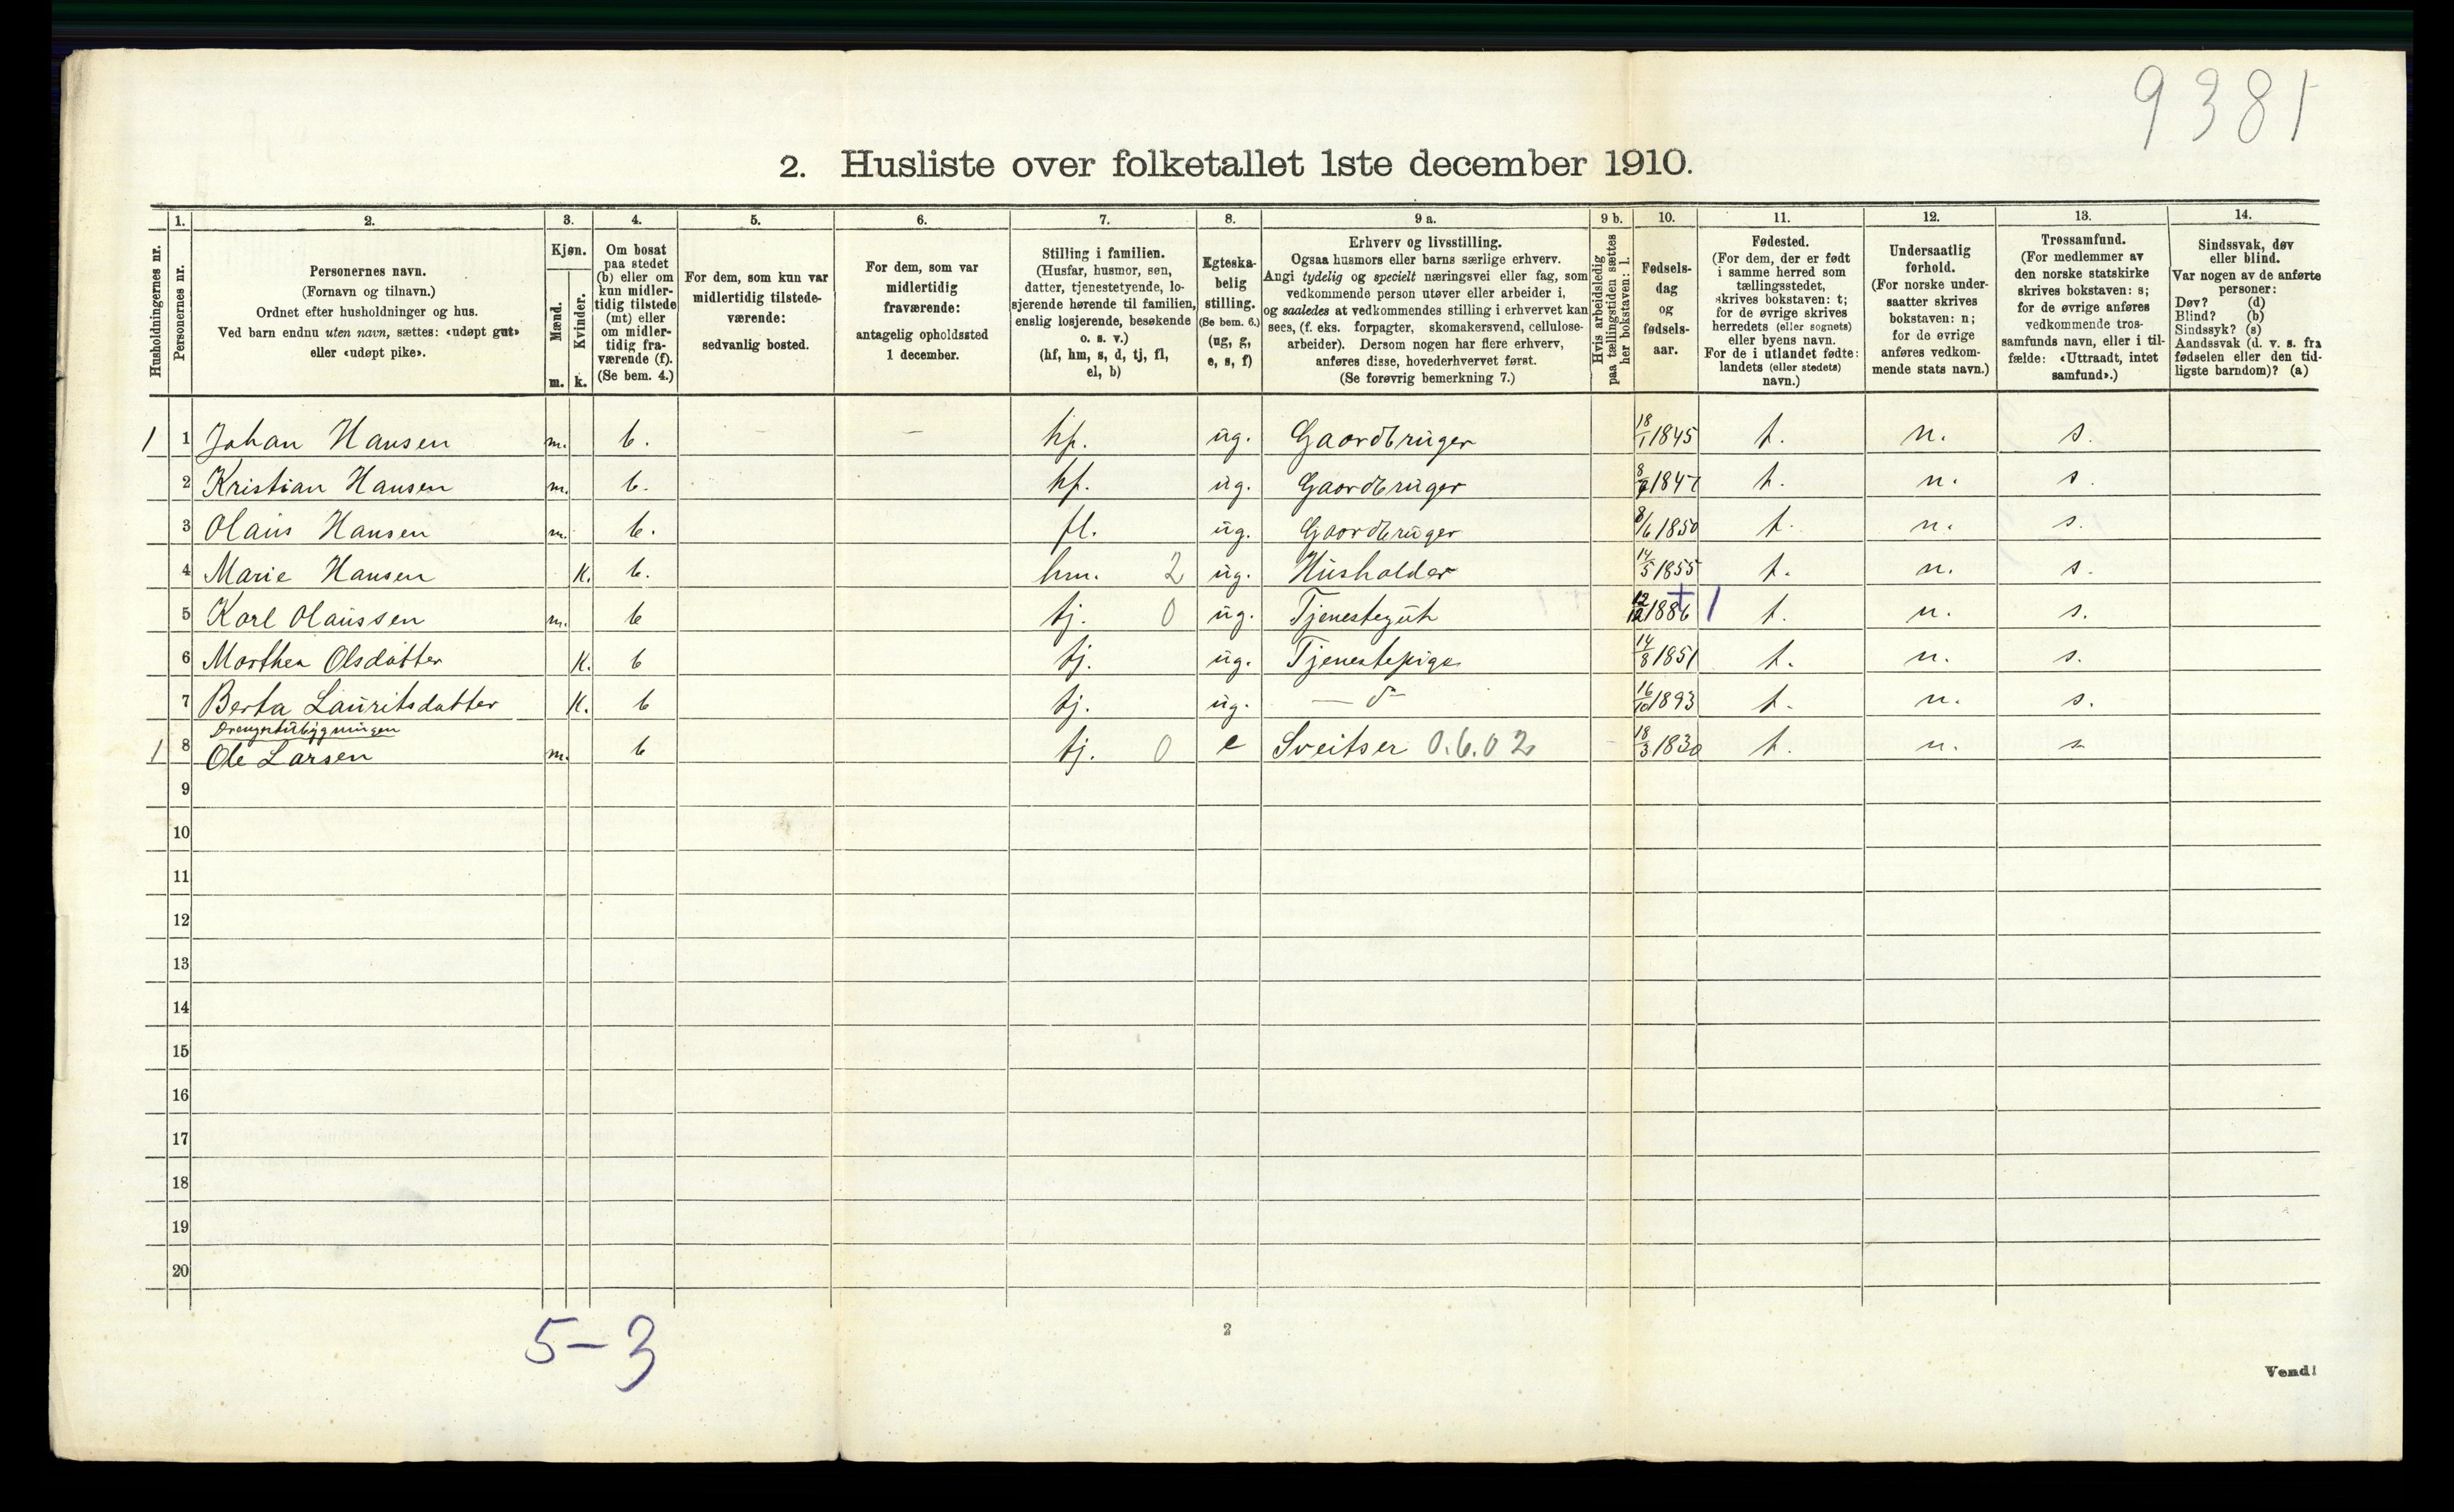 9381
2. Husliste over folketallet 1ste december 1910.
Husholdningernes nr.
1.
Personernes nr.
2.
Personernes navn.
(Fornavn og tilnavn.)
Ordnet efter husholdninger og hus.
Ved barn endnu uten navn, sættes: «udøpt gut»
eller «udøpt pike».
3.
Kjøn.
Mænd.
m.
Kvinder.
k.
4.
Om bosat
paa stedet
(b) eller om
kun midler-
tidig tilstede
(mt) eller
om midler-
tidig fra-
værende (f).
(Se bem. 4.)
5.
For dem, som kun var
midlertidig tilstede-
værende:
sedvanlig bosted.
6.
For dem, som var
midlertidig
fraværende:
antagelig opholdssted
1 december.
7.
Stilling i familien.
(Husfar, husmor, søn,
datter, tjenestetyende, lo-
sjerende hørende til familien,
enslig losjerende, besøkende
o. s. v.)
(hf, hm, s, d, tj, fl,
el, b)
8.
Egteska-
belig
stilling.
(Se bem. 6.)
(ug, g,
e, s, f)
9 a.
Erhverv og livsstilling.
Ogsaa husmors eller barns særlige erhverv.
Angi tydelig og specielt næringsvei eller fag, som
vedkommende person utøver eller arbeider i,
og saaledes at vedkommendes stilling i erhvervet kan
sees, (f. eks. forpagter, skomakersvend, cellulose-
arbeider). Dersom nogen har flere erhverv,
anføres disse, hovederhvervet først.
(Se forøvrig bemerkning 7.)
9 b.
Hvis arbeidsledig
paa tællingstiden sættes
her bokstaven: l.
10.
Fødsels-
dag
og
fødsels-
aar.
11.
Fødested.
(For dem, der er født
i samme herred som
tællingsstedet,
skrives bokstaven: t;
for de øvrige skrives
herredets (eller sognets)
eller byens navn.
For de i utlandet fødte:
landets (eller stedets)
navn.)
12.
Undersaatlig
forhold.
(For norske under-
saatter skrives
bokstaven: n;
for de øvrige
anføres vedkom-
mende stats navn.)
13.
Trossamfund.
(For medlemmer av
den norske statskirke
skrives bokstaven: s;
for de øvrige anføres
vedkommende tros-
samfunds navn, eller i til-
fælde: «Uttraadt, intet
samfund».)
14.
Sindssvak, døv
eller blind.
Var nogen av de anførte
personer:
Døv? (d)
Blind? (b)
Sindssyk? (s)
Aandssvak (d. v. s. fra
fødselen eller den tid-
ligste barndom)? (a)
1 1 Johan Hansen m. b. – – hf. ug. Gaardbruger 18/1 1845 t. n. s.
2 Kristian Hansen m. b. hf. ug. Gaardbruger t. n. s.
3 Olaus Hansen m. b. fl. ug. Gaardbruger 8/6 1850 t. n. s.
4 Marie Hansen K. b. hm. 2 ug. Husholder 14/5 1855 t. n. s.
5 Karl Olaussen m. b tj. 0 ug. Tjenestegut 12/12 1886 + 1 t. n. s.
6 Marthea Olsdatter K. b tj. ug. Tjenestepige 14/8 1851 t. n. s.
7 Berta Lauritsdatter K. b tj. ug. — d° 16/10 1893 t. n. s.
Drengstubygningen
1 8 Ole Larsen m. b tj. 0 e Sveitser 0.6.02 18/3 1830 t. n. s
9
10
11
12
13
14
15
16
17
18
19
20
5–3
2
Vend!